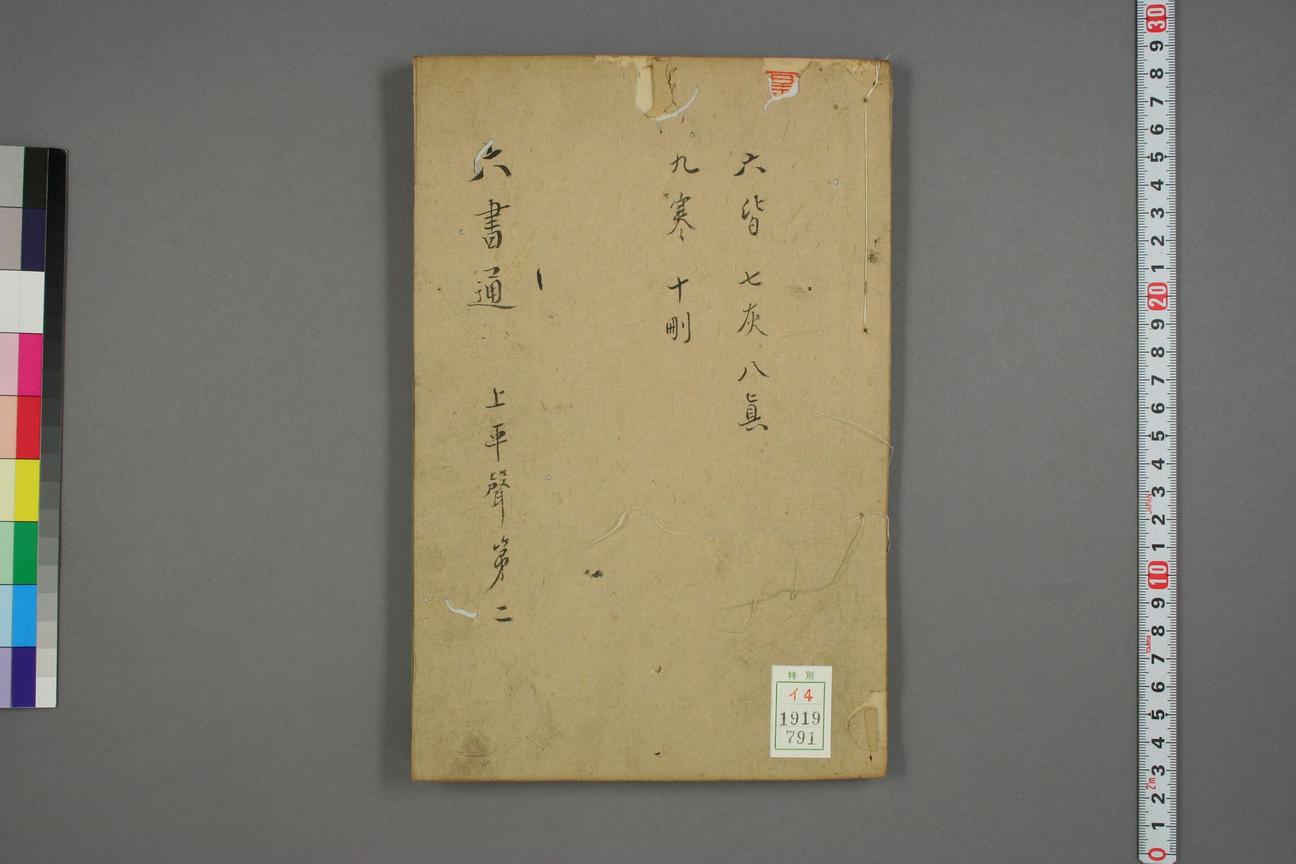 六皆 七灰 八眞
九寒 十刪
六書通 上平聲第二
特別
イ4
1919
791
30
9
8
7
6
5
4
3
2
1
20
9
8
7
6
5
4
3
JAPAN
2
1
10
9
8
7
6
5
4
3
2m
2
1
0